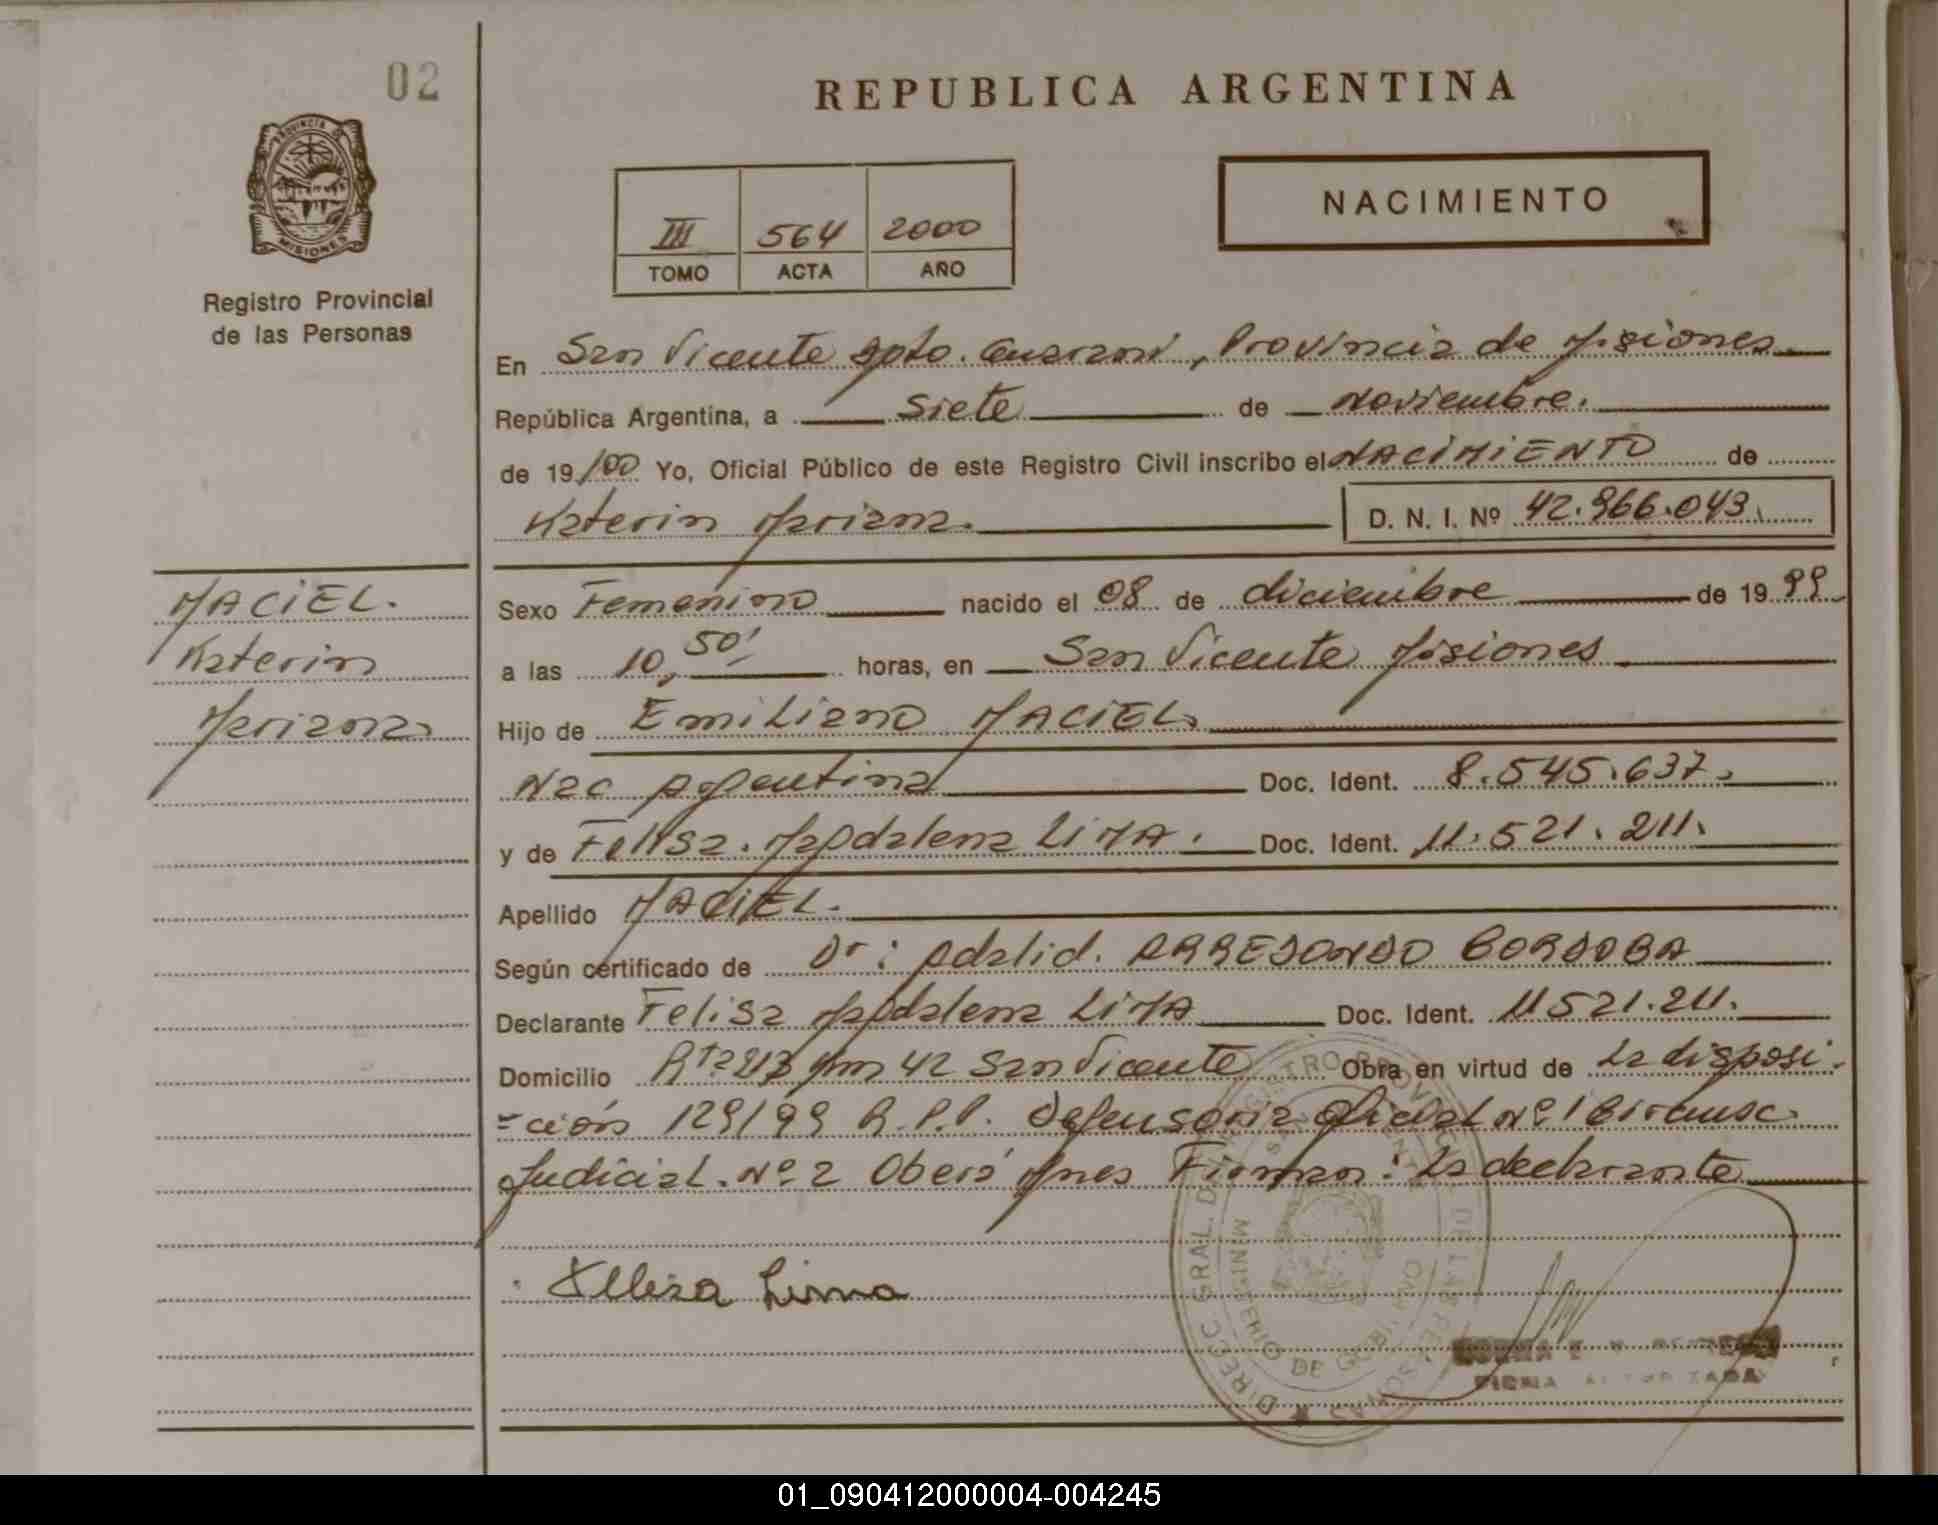 02
REPUBLICA ARGENTINA
PROVINCIA DE
MISIONES
Registro Provincial
de las Personas
III 564 2000
TOMO ACTA AÑO
NACIMIENTO
En San Vicente Dpto. Guaraní, Provincia de Misiones
República Argentina, a Siete de Noviembre.
de 19/00 Yo, Oficial Público de este Registro Civil inscribo el NACIMIENTO de
Katerin Mariana. D. N. I. Nº 42.966.043.
MACIEL.
Katerin
Mariana
Sexo Femenino nacido el 08 de diciembre de 19 99
a las 10,50' horas, en San Vicente Misiones
Hijo de Emiliano MACIEL
Nac Argentina Doc. Ident. 8.545.637.
y de Felisa. Magdalena LIMA. Doc. Ident. 11.521.211.
Apellido MACIEL.
Según certificado de Dr: Adalid. ARREDONDO CORDOBA
Declarante Felisa Magdalena LIMA Doc. Ident. 11521.211.
Domicilio Rta 213 Km 42 San Vicente Obra en virtud de La disposi-
=ción 129/99 R.P.P. Defensoria Oficial Nº 1 Circunsc.
Judicial. Nº 2 Oberá Mnes Firman: La declarante
Felisa Lima
DIRECC. GRAL. DEL REGISTRO PROVINCIAL DE LAS PERSONAS
MINISTERIO DE GOBIERNO
SAN VICENTE
NORMA
FIRMA AUTORIZADA
01_090412000004-004245